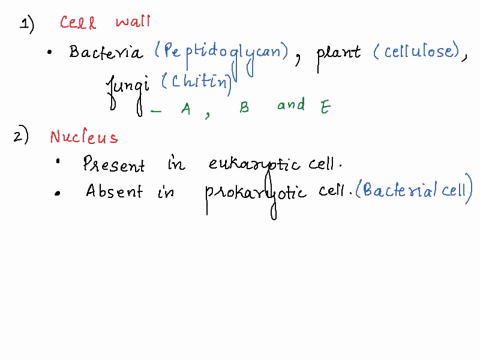 1) Cell wall
• Bacteria (Peptidoglycan), plant (cellulose),
fungi (Chitin)
– A, B and E
2) Nucleus
• Present in eukaryotic cell.
• Absent in prokaryotic cell. (Bacterial cell)